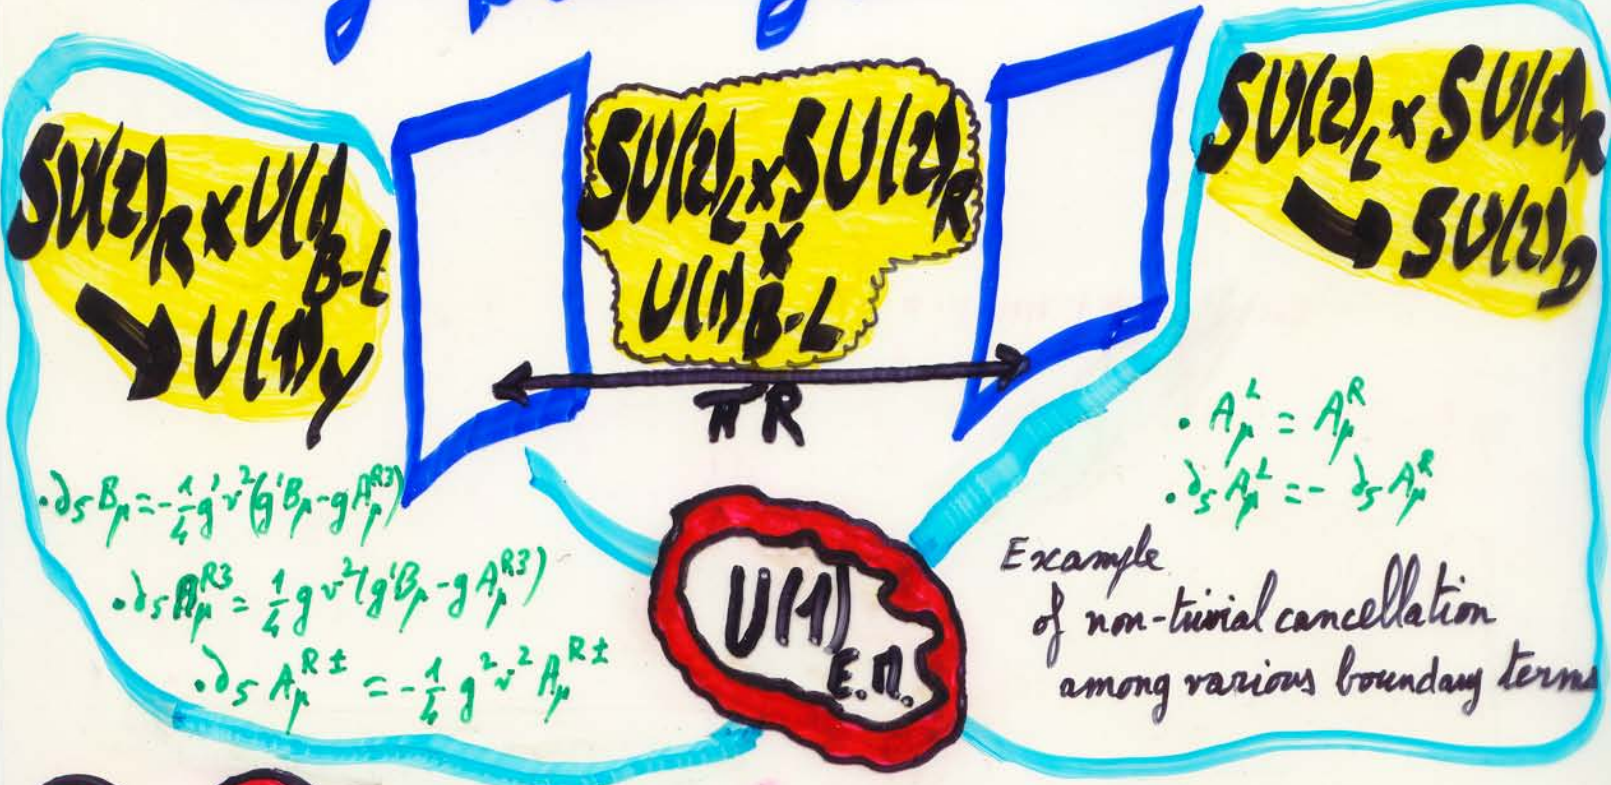 SU(2)_R × U(1)_{B-L}
→ U(1)_Y
SU(2)_L × SU(2)_R
×
U(1)_{B-L}
πR
SU(2)_L × SU(2)_R
→ SU(2)_D
· ∂_5 B_μ = -1/4 g' v^2 (g' B_μ - g A_μ^{R3})
· ∂_5 A_μ^{R3} = 1/4 g v^2 (g' B_μ - g A_μ^{R3})
· ∂_5 A_μ^{R±} = -1/4 g^2 v^2 A_μ^{R±}
U(1)
E.M.
· A_μ^L = A_μ^R
· ∂_5 A_μ^L = - ∂_5 A_μ^R
Example
of non-trivial cancellation
among various boundary terms